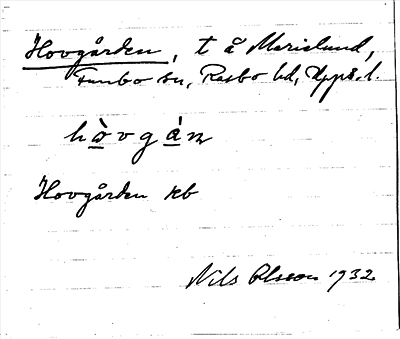 Hovgården, t å Marielund,
Funbo sn, Rasbo hd, Upps. l.
hòvgán
Hovgården kb
Nils Olsson 1932